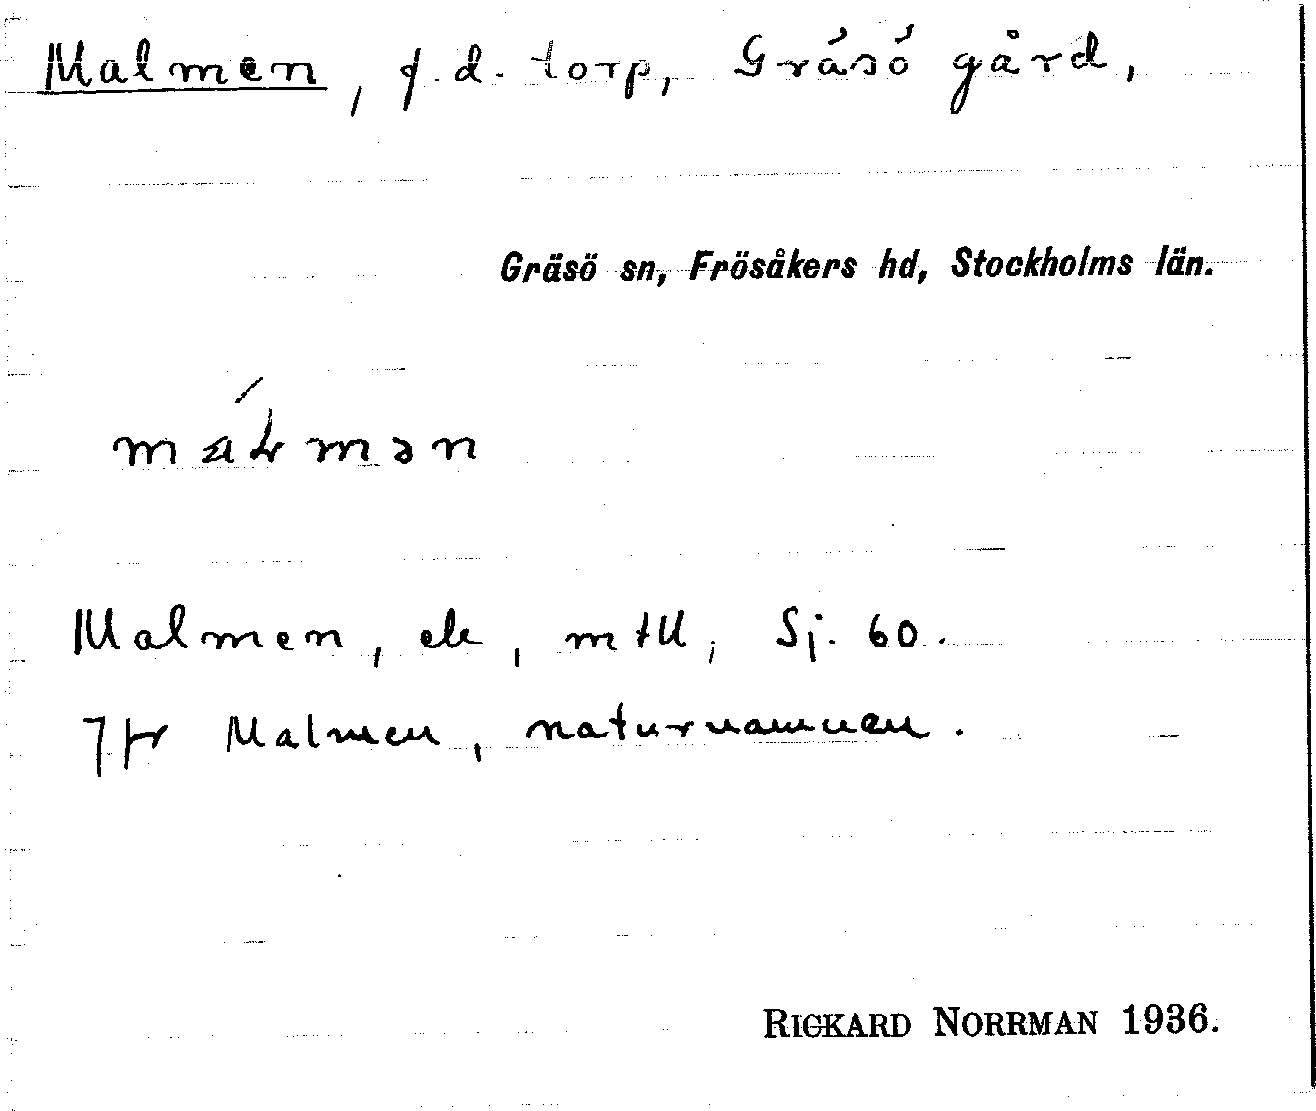 Malmen, f.d. torp, Gräsö gård,
Gräsö sn, Frösåkers hd, Stockholms län.
Malmen, mtU, Sj. 60.
Jfr Malmen, naturnamnen.
RICKARD NORRMAN 1936.